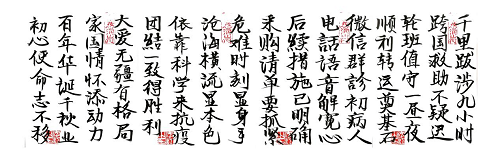 千里跋涉九小时
跨国救助不疑迟
轮班值守一昼夜
顺利转运奠基石
微信群診初病人
电話語音解宽心
后續措施已明确
采购清单要抓紧
危难时刻显身手
沧海横流显本色
依靠科学来抗疫
团結一致得胜利
大爱无疆有格局
家国情怀添动力
百年华诞千秋业
初心使命志不移